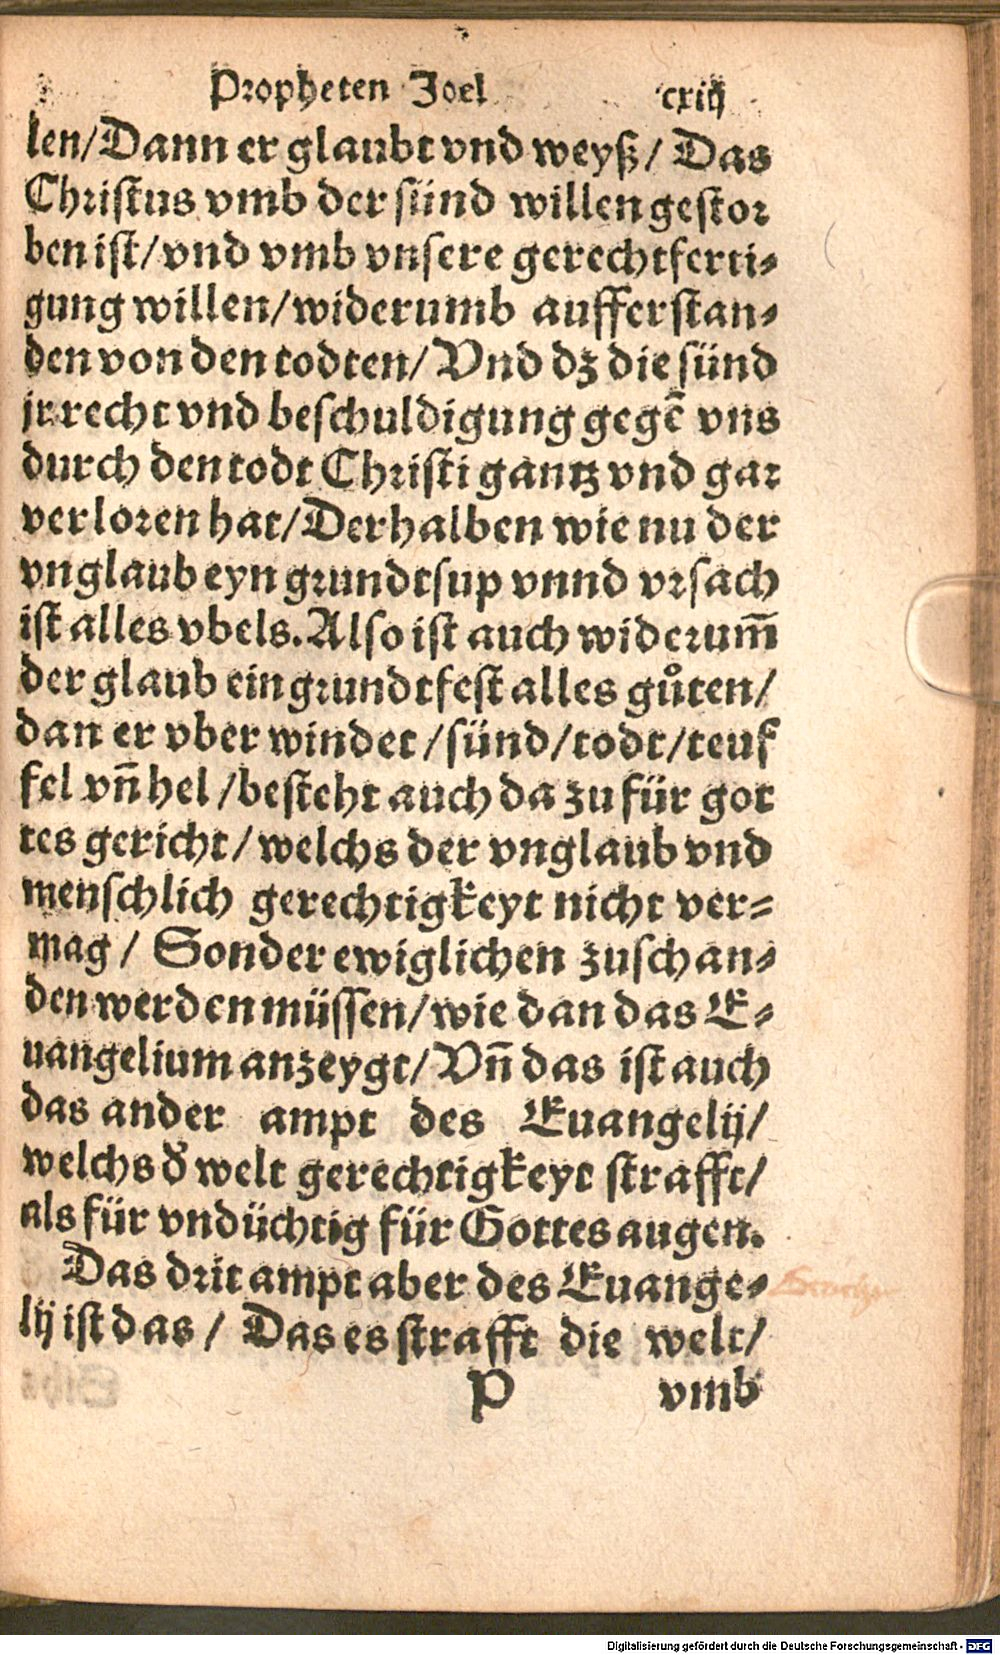 Propheten Joel cxiij
len/Dann er glaubt vnd weyß/ Das
Christus vmb der sünd willen gestor
ben ist/vnd vmb vnsere gerechtferti-
gung willen/widerumb aufferstan-
den von den todten/Vnd dz die sünd
jr recht vnd beschuldigung gegē vns
durch den todt Christi gantz vnd gar
verloren hat/Derhalben wie nu der
vnglaub eyn grundtsup vnnd vrsach
ist alles vbels. Also ist auch widerum̄
der glaub ein grundtfest alles gůten/
dan er vber windet/sünd/todt/teuf
fel vn̄ hel/besteht auch da zu für got
tes gericht/welchs der vnglaub vnd
menschlich gerechtigkeyt nicht ver-
mag/ Sonder ewiglichen zuschan-
den werden müssen/wie dan das E-
uangelium anzeygt/Vn̄ das ist auch
das ander ampt des Euangelij/
welchs d̕ welt gerechtigkeyt strafft/
als für vndüchtig für Gottes augen.
Das drit ampt aber des Euange-
lij ist das/ Das es strafft die welt/
P vmb
Digitalisierung gefördert durch die Deutsche Forschungsgemeinschaft - DFG